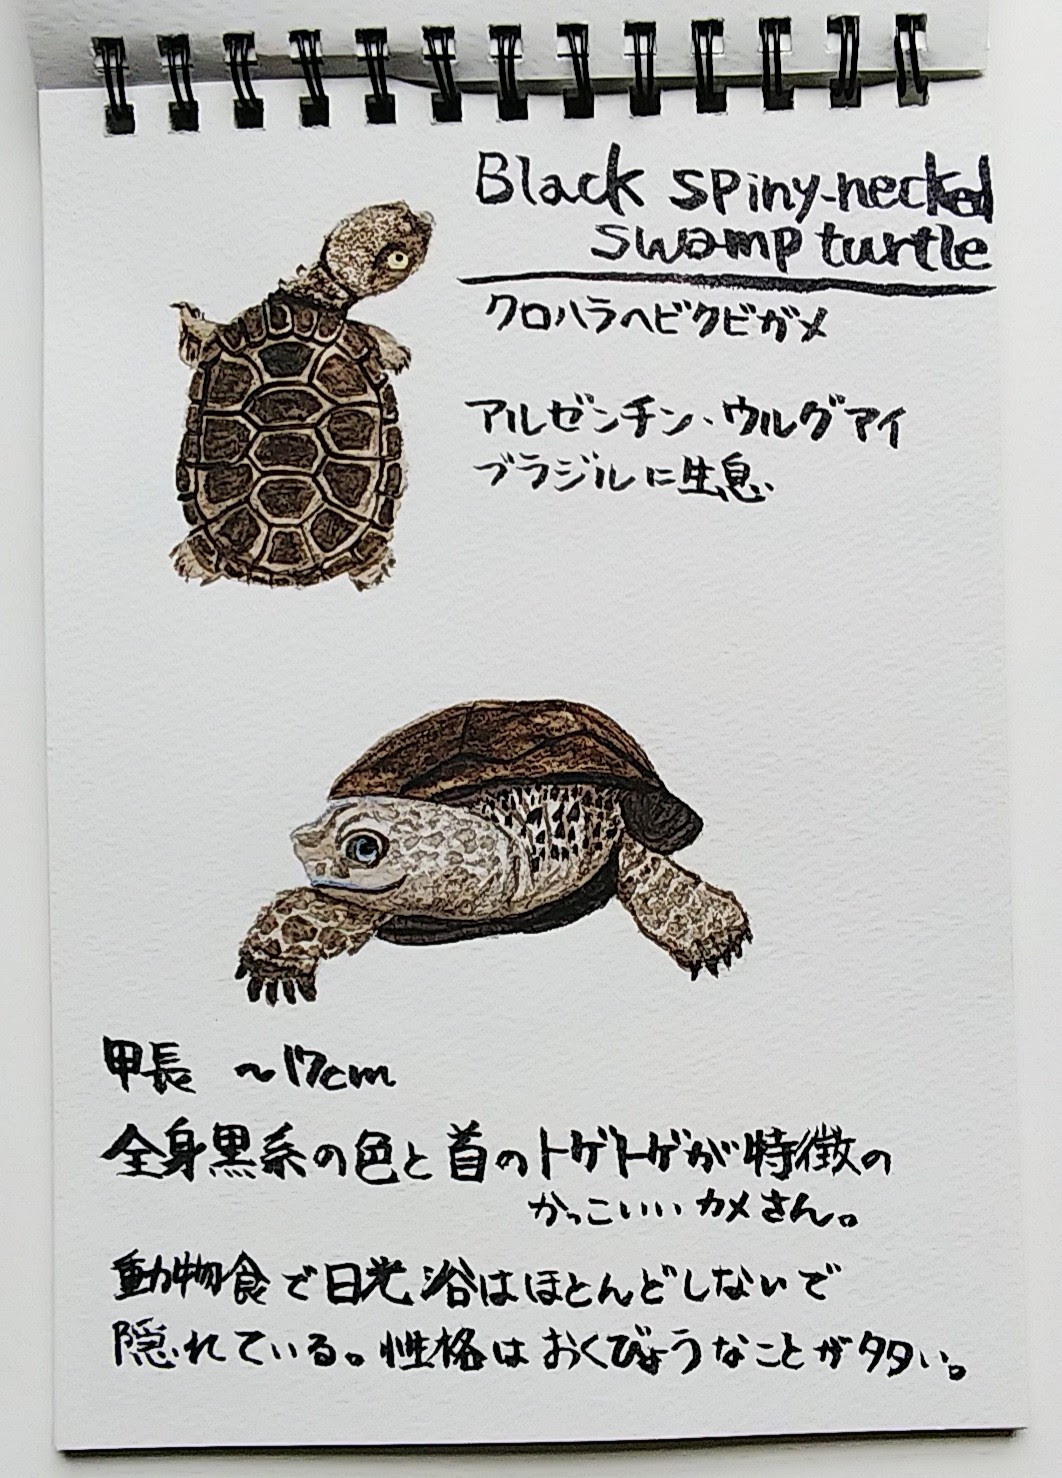 Black spiny-necked
swamp turtle
クロハラヘビクビガメ
アルゼンチン、ウルグアイ
ブラジルに生息、
甲長 〜17cm
全身黒系の色と首のトゲトゲが特徴の
かっこいい カメさん。
動物食で日光浴はほとんどしないで
隠れている。性格はおくびょうなことが多い。